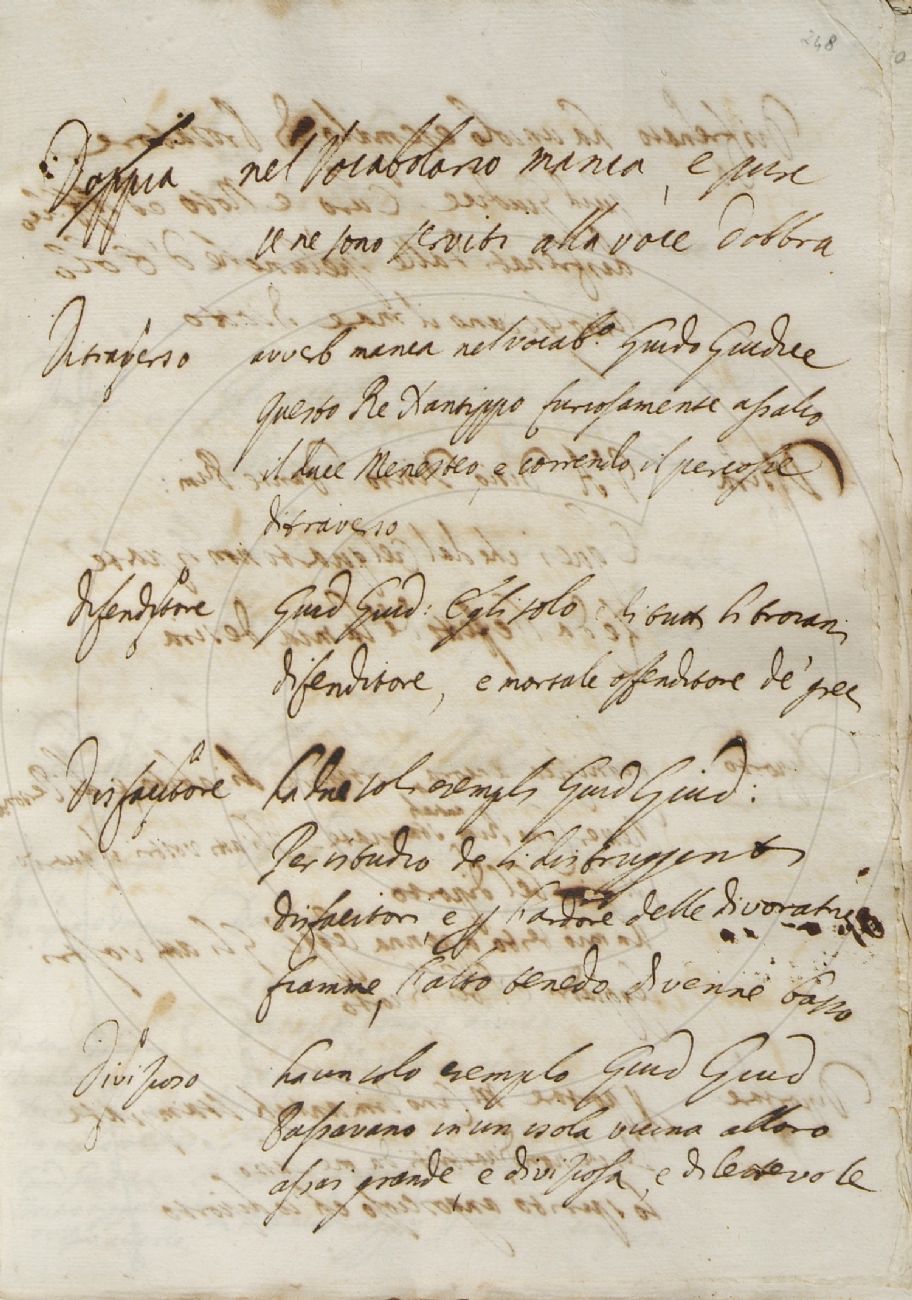 248
Doppia nel Vocabolario manca, e pure
se ne sono serviti alla voce Dobbra
Ditraverso avverb manca nel vocab.o Guido Giudice
questo Re Xantippo furiosamente assalio
il duce Menesteo, e correndo il percosse
ditraverso
difenditore Guid Guid: Egli solo di tutti li troiani
difenditore, e mortale offenditore de' greci
Disfacitore ha due soli esempli Guid Giud:
Per istudio de li distruggenti
disfacitori, e l'ardore delle divoratrici
fiamme, l'alto Tenedo divenne basso
ha un solo esemplo Guid Guid
Passavano in un isola vicina alloro
assai grande, e, e dilettevole